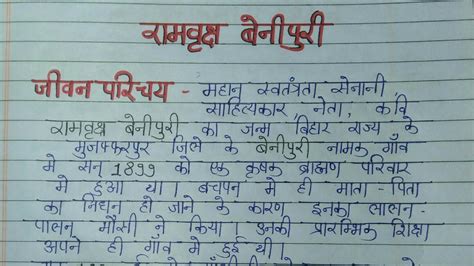 रामवृक्ष बेनीपुरी
जीवन परिचय - महान स्वतंत्रता सेनानी,
साहित्यकार, नेता, कवि
रामवृक्ष बेनीपुरी का जन्म बिहार राज्य के
मुजफ्फरपुर जिले के बेनीपुरी नामक गाँव
मे सन् 1899 को एक कृषक ब्राह्मण परिवार
मे हुआ था। बचपन मे ही माता - पिता
का निधन हो जाने के कारण इनका लालन -
पालन मौसी ने किया। उनकी प्रारम्भिक शिक्षा
अपने ही गाँव मे हुई थी।